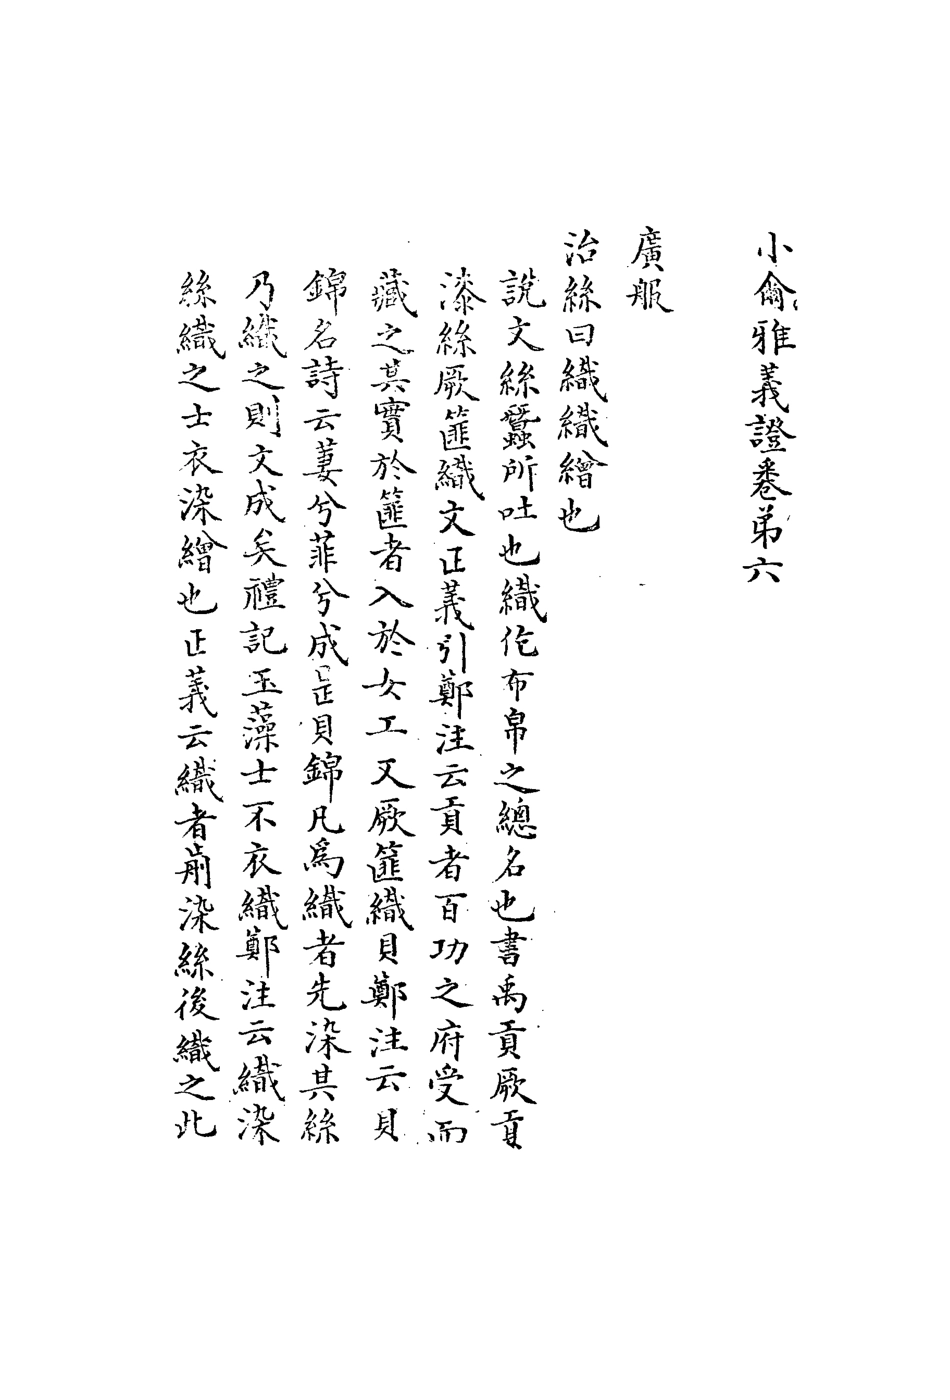 小爾雅義證卷弟六
廣服
治絲曰織織繒也
說文絲蠶所吐也織作布帛之總名也書禹貢厥貢
漆絲厥篚織文正義引鄭注云貢者百功之府受而
藏之其實於篚者入於女工又厥篚織貝鄭注云貝
錦名詩云萋兮菲兮成是貝錦凡爲織者先染其絲
乃織之則文成矣禮記玉藻士不衣織鄭注云織染
絲織之士衣染繒也正義云織者前染絲後織之此